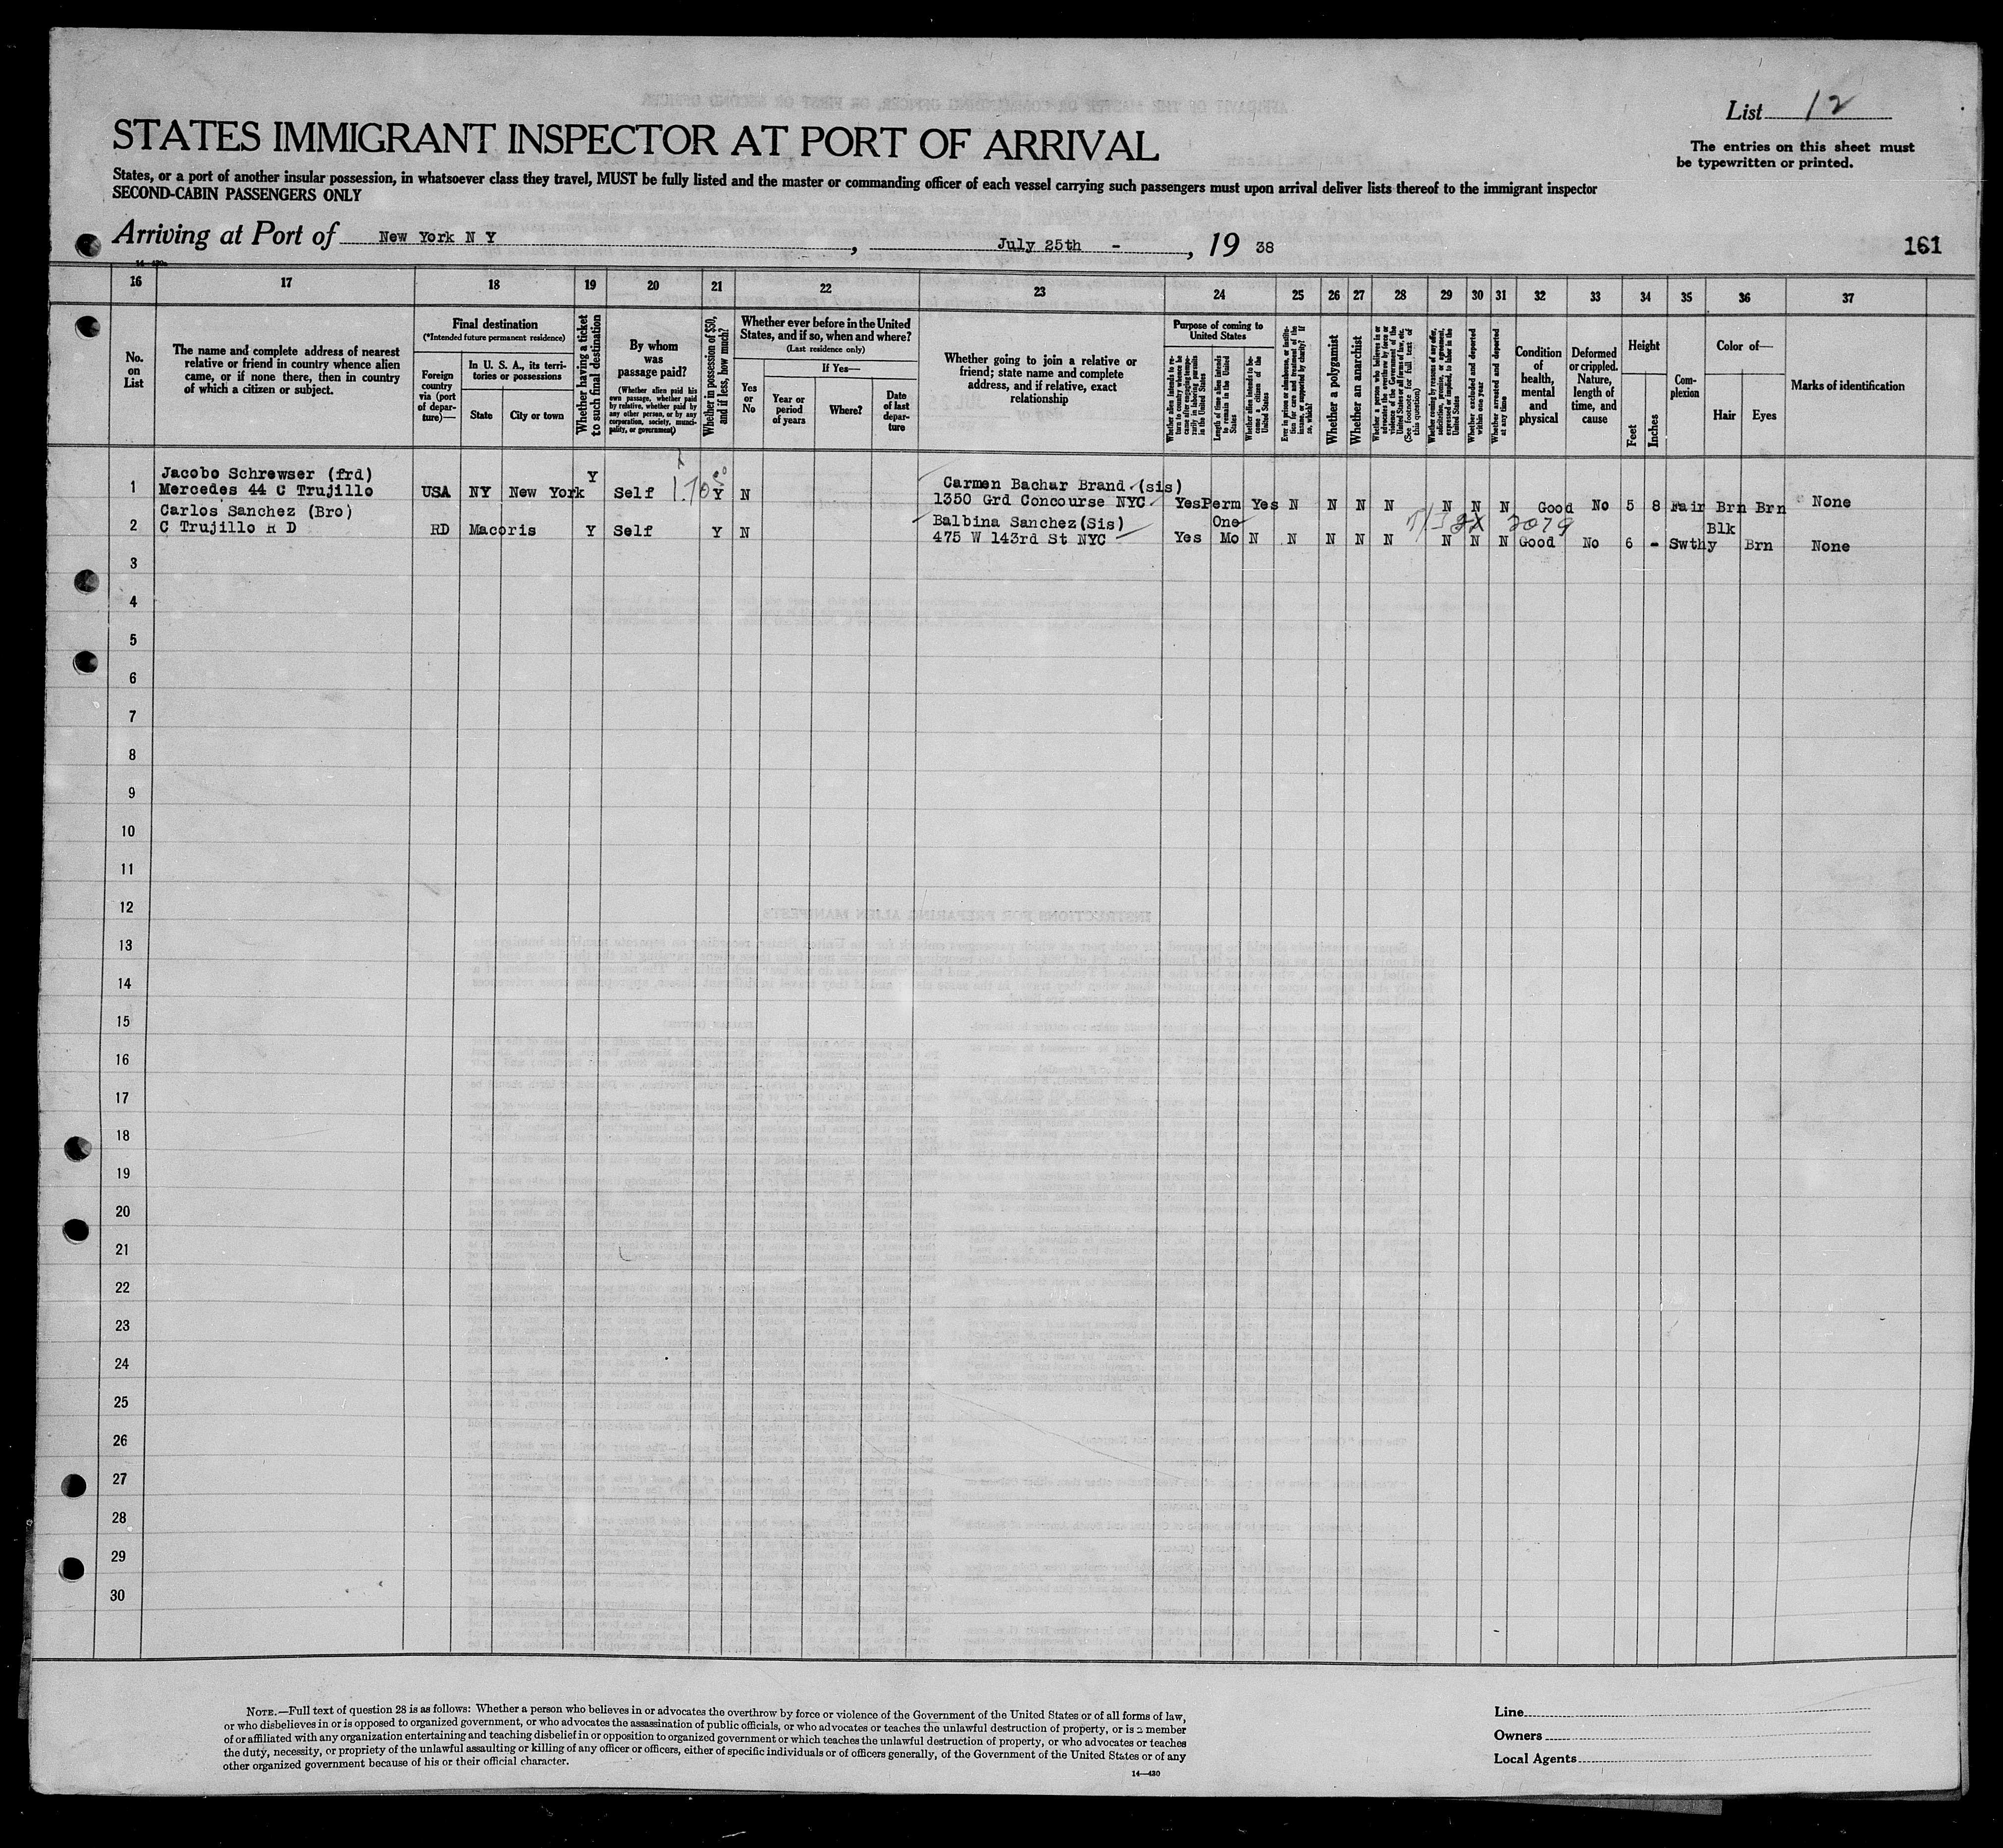 List 12
The entries on this sheet must
be typewritten or printed.
STATES IMMIGRANT INSPECTOR AT PORT OF ARRIVAL
States, or a port of another insular possession, in whatsoever class they travel, MUST be fully listed and the master or commanding officer of each vessel carrying such passengers must upon arrival deliver lists thereof to the immigrant inspector
SECOND-CABIN PASSENGERS ONLY
Arriving at Port of New York N Y, July 25th - , 19 38
161
16 17 18 19 20 21 22 23 24 25 26 27 28 29 30 31 32 33 34 35 36 37
No. on List
The name and complete address of nearest
relative or friend in country whence alien
came, or if none there, then in country
of which a citizen or subject.
Final destination
(*Intended future permanent residence)
Foreign country via (port of departure)—
In U. S. A., its territories or possessions
State
City or town
Whether having a ticket to such final destination
By whom was passage paid?
(Whether alien paid his own passage, whether paid by relative, whether paid by any other person, or by any corporation, society, municipality, or government)
Whether in possession of $50, and if less, how much?
Whether ever before in the United States, and if so, when and where?
(Last residence only)
Yes or No
If Yes—
Year or period of years
Where?
Date of last departure
Whether going to join a relative or
friend; state name and complete
address, and if relative, exact
relationship
Purpose of coming to United States
Length of time alien intends to remain in the United States
Whether alien intends to become a citizen of the United States
Whether a polygamist
Whether an anarchist
Whether excluded and deported within one year
Whether arrested and deported at any time
Condition of health, mental and physical
Deformed or crippled. Nature, length of time, and cause
Height
Feet
Inches
Complexion
Color of—
Hair
Eyes
Marks of identification
1 Jacobo Schrewser (frd)
Mercedes 44 C Trujillo USA NY New York Y Self Y N Carmen Bachar Brand (sis)
1350 Grd Concourse NYC Yes Perm Yes N N N N N N N Good No 5 8 Fair Brn Brn None
2 Carlos Sanchez (Bro)
C Trujillo R D RD Macoris Y Self Y N Balbina Sanchez(Sis)
475 W 143rd St NYC Yes One Mo N N N N N N N N Good No 6 - Swthy Blk Brn None
3
4
5
6
7
8
9
10
11
12
13
14
15
16
17
18
19
20
21
22
23
24
25
26
27
28
29
30
NOTE.—Full text of question 28 is as follows: Whether a person who believes in or advocates the overthrow by force or violence of the Government of the United States or of all forms of law,
or who disbelieves in or is opposed to organized government, or who advocates the assassination of public officials, or who advocates or teaches the unlawful destruction of property, or is a member
of or affiliated with any organization entertaining and teaching disbelief in or opposition to organized government or which teaches the unlawful destruction of property, or who advocates or teaches
the duty, necessity, or propriety of the unlawful assaulting or killing of any officer or officers, either of specific individuals or of officers generally, of the Government of the United States or of any
other organized government because of his or their official character.
14—430
Line
Owners
Local Agents